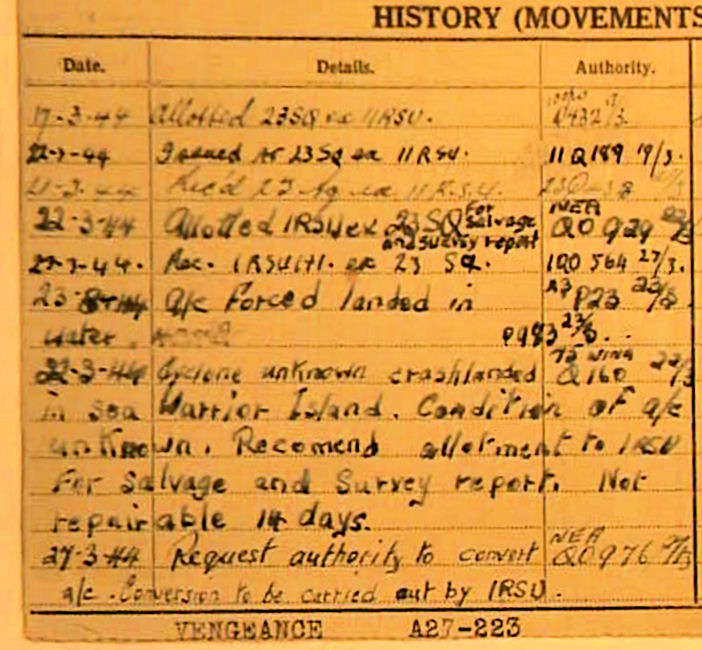 HISTORY (MOVEMENTS
Date. Details. Authority.
17-3-44 Allotted 23SQ ex 11RSU. 432/3.
Issued to 23 Sq ex 11 RSU. 11 Q189 19/3.
Rec'd 23 Sq ex 11 R.S.U.
22-3-44 Allotted 1RSU ex 23 SQ for salvage and survey report NEA QO 929
27-3-44. Rec. 1RSU ex 23 SQ. 1RO 564 27/3.
23 a/c Forced landed in P23
water. P983 23/3.
22-3-44 Cyclone unknown crashlanded 75 WING Q160 22/3
in sea Warrior Island. Condition of a/c
unknown. Recomend allotment to 1RSU
For Salvage and Survey report. Not
repairable 14 days.
27-3-44 Request authority to convert NEA QO976
a/c. Conversion to be carried out by 1RSU.
VENGEANCE A27-223